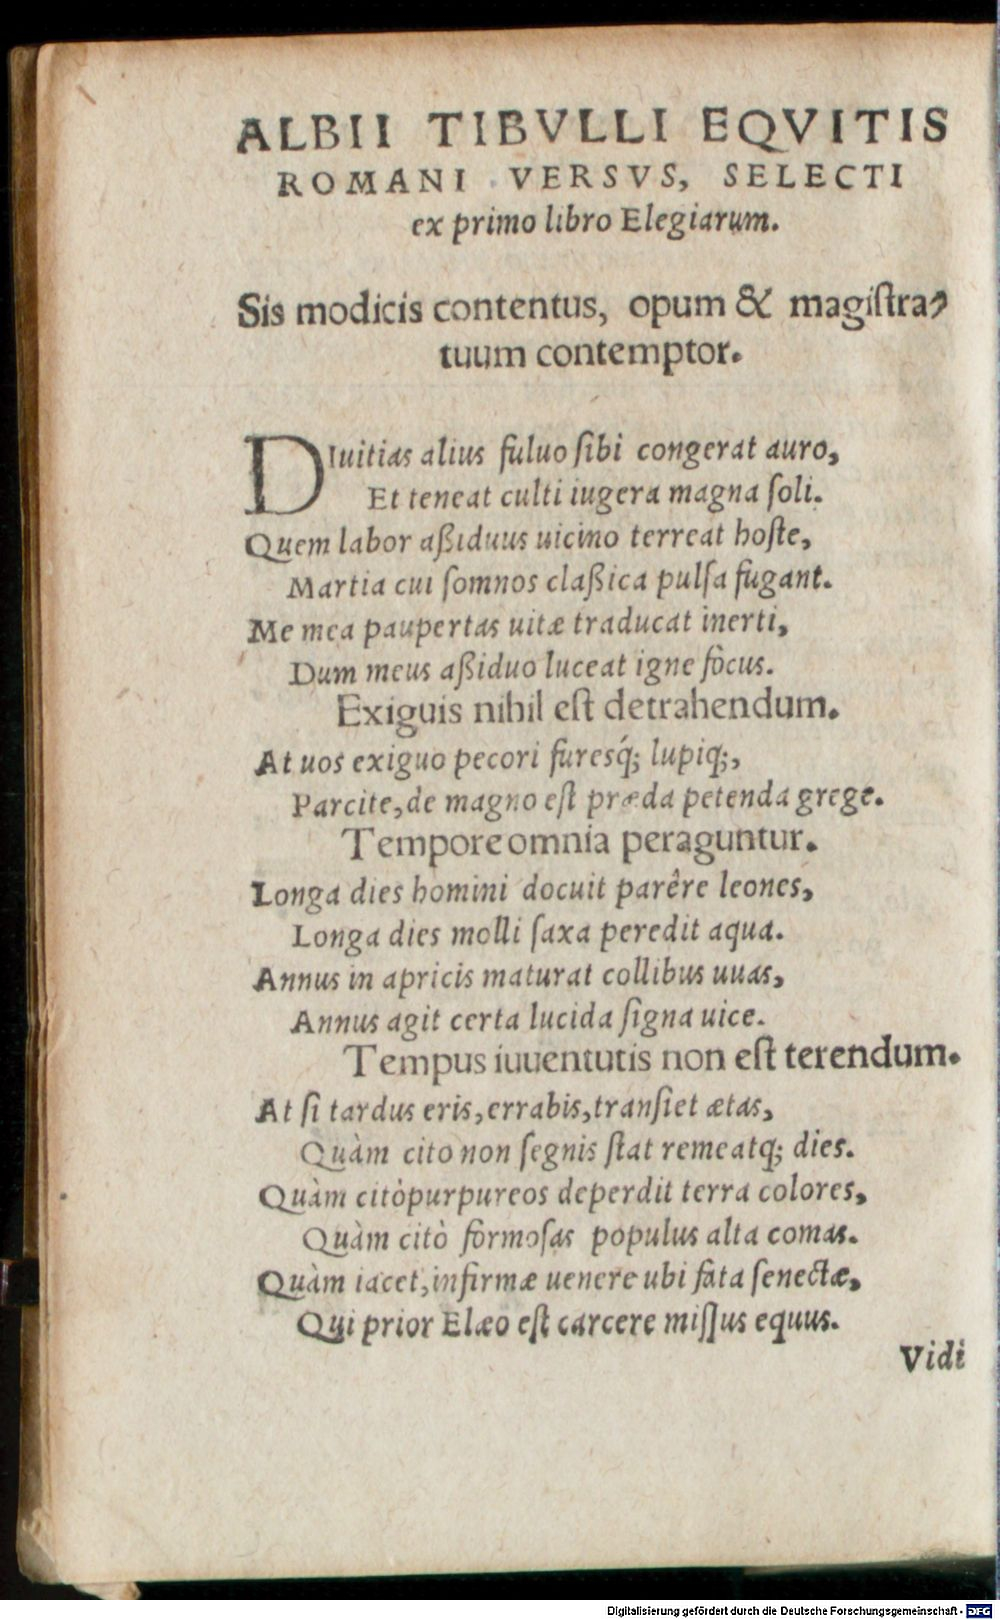 ALBII TIBVLLI EQVITIS
ROMANI VERSVS, SELECTI
ex primo libro Elegiarum.
Sis modicis contentus, opum & magiſtra⸗
tuum contemptor.
DIuitias alius fuluo ſibi congerat auro,
Et teneat culti iugera magna ſoli.
Quem labor aßiduus uicino terreat hoſte,
Martia cui ſomnos claßica pulſa fugant.
Me mea paupertas uitæ traducat inerti,
Dum meus aßiduo luceat igne focus.
Exiguis nihil eſt detrahendum.
At uos exiguo pecori furesq́; lupiq;,
Parcite, de magno eſt præda petenda grege.
Tempore omnia peraguntur.
Longa dies homini docuit parêre leones,
Longa dies molli ſaxa peredit aqua.
Annus in apricis maturat collibus uuas,
Annus agit certa lucida ſigna uice.
Tempus iuuentutis non eſt terendum.
At ſi tardus eris, errabis, tranſiet ætas,
Quàm cito non ſegnis ſtat remeatq; dies.
Quàm citò purpureos deperdit terra colores,
Quàm citò formoſas populus alta comas.
Quàm iacet, infirmæ uenere ubi fata ſenectæ,
Qui prior Elæo eſt carcere miſſus equus.
Vidi
Digitalisierung gefördert durch die Deutsche Forschungsgemeinschaft - DFG